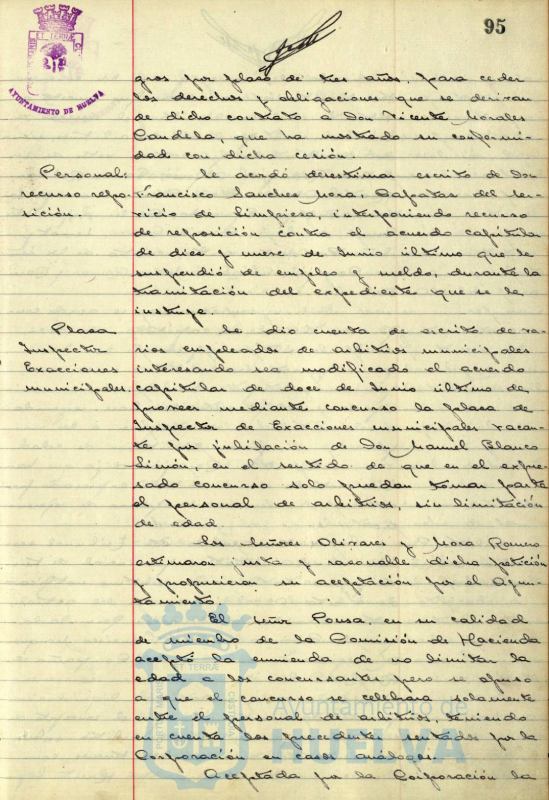 95
AYUNTAMIENTO DE HUELVA
gros por plazo de tres años, para ceder
los derechos y obligaciones que se derivan
de dicho contrato a Don Vicente Morales
Candela, que ha mostrado su conformi-
dad con dicha cesión.
Personal:
recurso repo-
sición.
Se acordó desestimar escrito de Don
Francisco Sanchez Mora, Capataz del ser-
vicio de limpieza, interponiendo recurso
de reposición contra el acuerdo capitular
de diez y nueve de Junio último que le
suspendió de empleo y sueldo, durante la
tramitación del expediente que se le
instruye.
Plaza
Inspector
Exacciones
municipales.
Se dio cuenta de escrito de va-
rios empleados de arbitrios municipales
interesando sea modificado el acuerdo
capitular de doce de Junio último de
proveer mediante concurso la plaza de
Inspector de Exacciones municipales vacan-
te por jubilación de Don Manuel Blanco
Simón, en el sentido de que en el expre-
sado concurso solo puedan tomar parte
el personal de arbitrios, sin limitación
de edad
Los Señores Olivares y Mora Romero
estimaron justa y razonable dicha petición
y propusieron su aceptación por el Ayun-
tamiento.
El Señor Pousa, en su calidad
de miembro de la Comisión de Hacienda
aceptó la enmienda de no limitar la
edad a los concursantes pero se opuso
a que el concurso se celebrara solamente
entre el personal de arbitrios, teniendo
en cuenta los precedentes sentados por la
Corporación en casos análogos.
Aceptada por la Corporación la
Ayuntamiento de
HUELVA